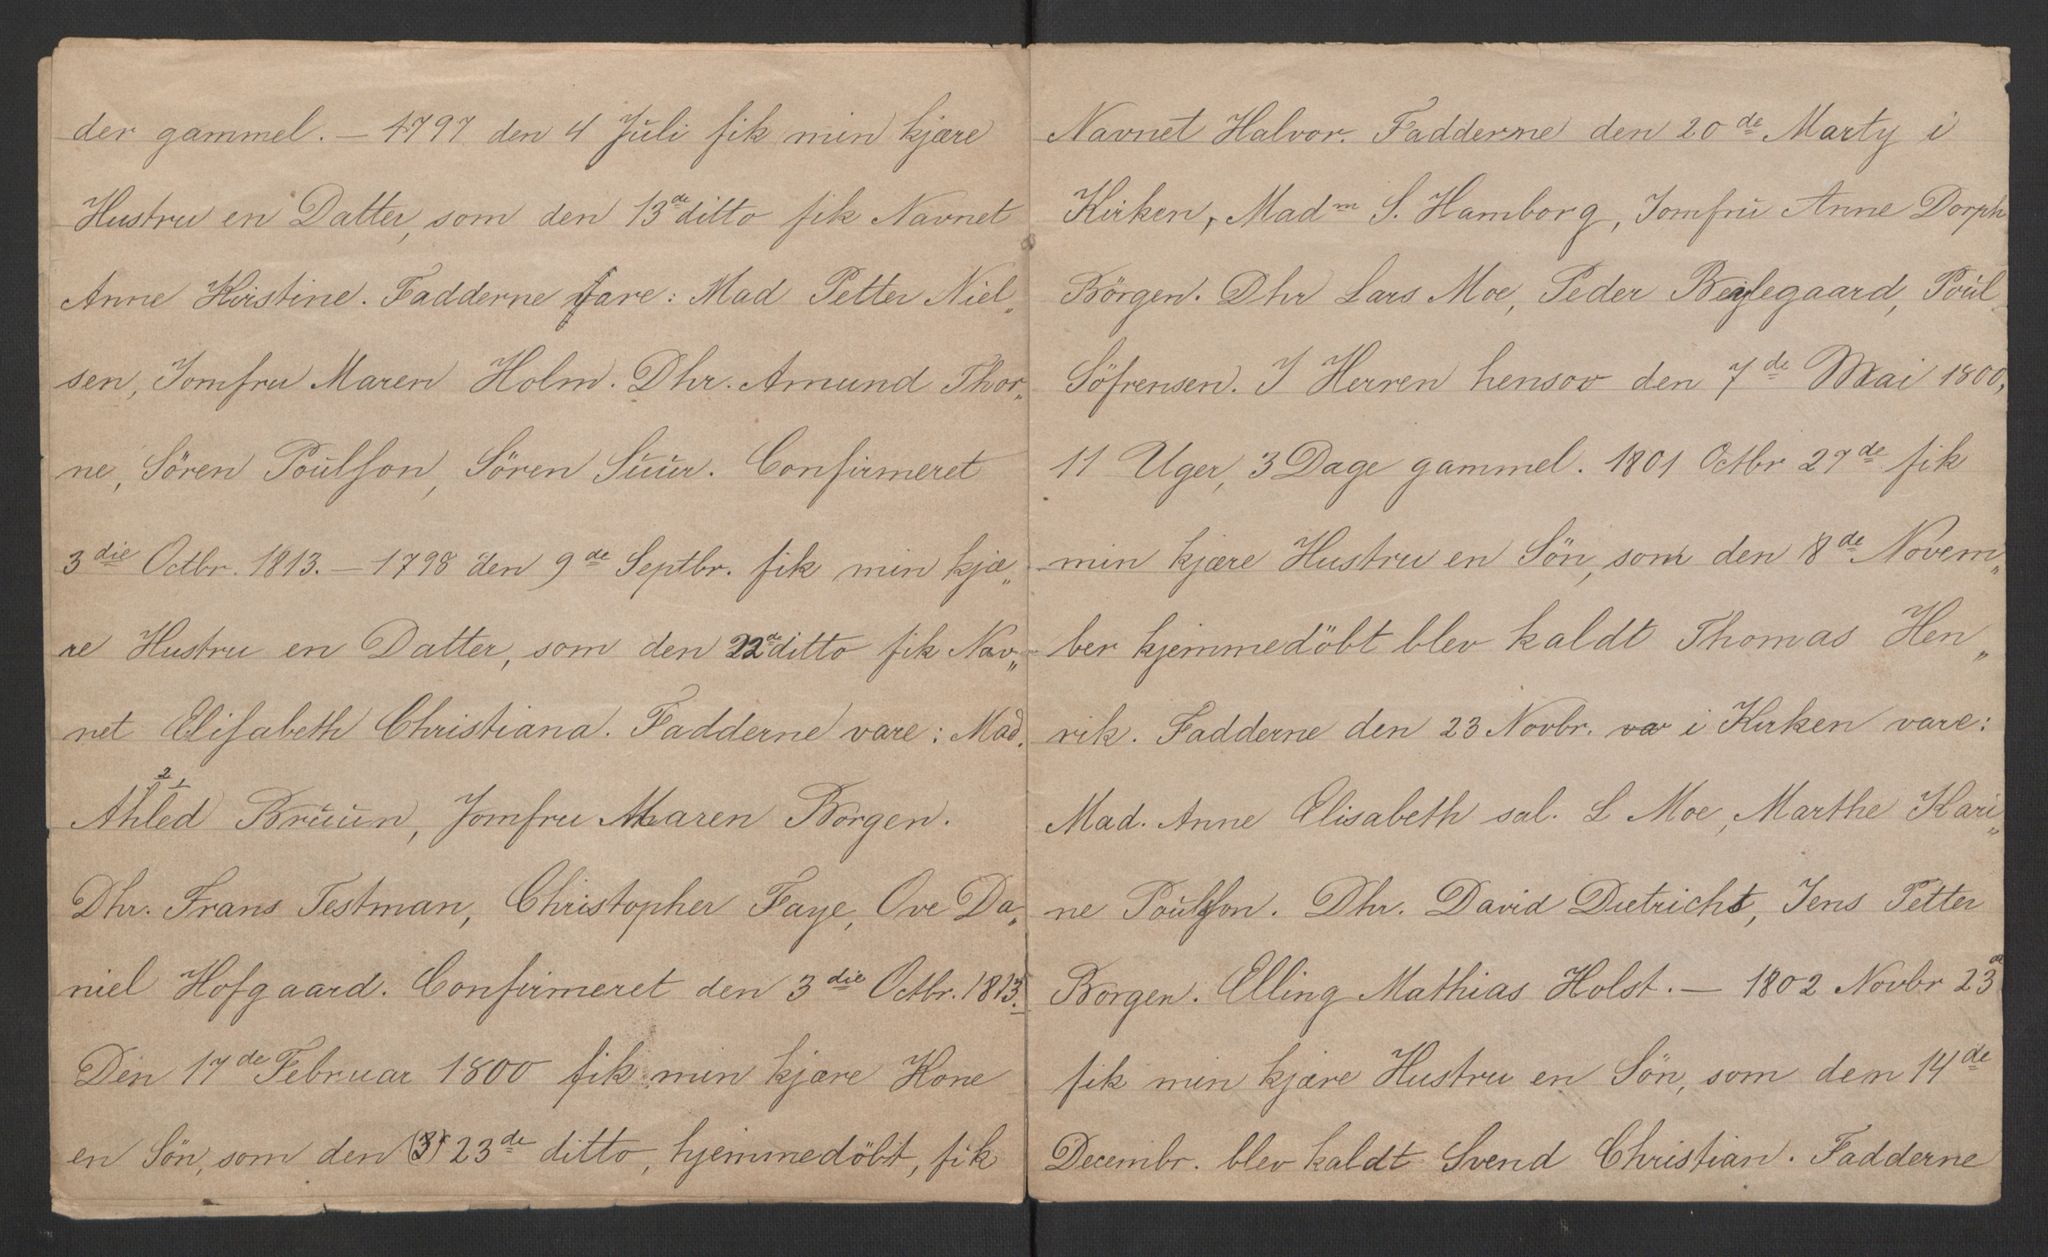 der gammel. — 1797 den 4 Juli fik min kjære
Hustru en Datter, som den 13de ditto fik Navnet
Anne Kirstine. Fadderne vare: Mad Petter Niel„
sen, Jomfru Maren Holm. Dhr. Amund Thor„
ne, Sören Poulson, Sören Suur. Confirmeret
3die Octbr. 1813. — 1798 den 9de Septbr. fik min kjæ„
re Hustru en Datter, som den 22de ditto fik Nav„
net Elisabeth Christiana. Fadderne vare: Mad.
Ahled Bruun, Jomfru Maren Borgen.
Dhr. Frans Testman, Christopher Faye, Ove Da„
niel Hofgaard. Confirmeret den 3die Octbr. 1813.
Den 17de Februar 1800 fik min kjære Kone
en Sön, som den (3) 23de ditto, hjemmedöbt, fik
Navnet Halvor. Fadderne den 20de Marty i
Kirken, Madm S. Hamborg, Jomfru Anne Dorph
Börgen. Dhr Lars Moe, Peder Beylegaard, Poul
Söfrensen. I Herren hensov den 7de Mai 1800,
11 Uger, 3 Dage gammel. 1801 Octbr 27de fik
min kjære Hustru en Sön, som den 8de Novem„
ber hjemmedöbt blev kaldt Thomas Hen„
rik. Fadderne den 23 Novbr. var i Kirken vare:
Mad. Anne Elisabeth sal. L Moe, Marthe Kari„
ne Poulson. Dhr. David Dietrichs, Jens Petter
Borgen. Elling Mathias Holst. — 1802 Novbr 23de
fik min kjære Hustru en Sön, som den 14de
Decembr. blev kaldt Svend Christian. Fadderne